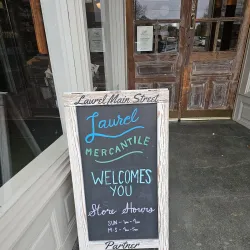 Laurel Main Street
Laurel
MERCANTILE
WELCOMES
YOU
Store Hours
SUN -
M-S -
Partner